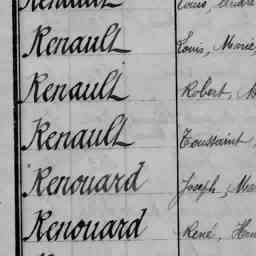 Renault Louis, André
Renault Louis, Marie
Renault Robert, M
Renault Toussaint,
Renouard Joseph, Mar
Renouard René, Hen